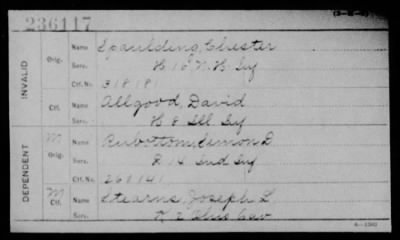 236117
INVALID
Orig. Name Spaulding, Chester
Serv. H 16 N.H. Inf
Ctf. No. 31818
Ctf. Name Allgood, David
Serv. H 8 Ill. Inf
DEPENDENT
M Orig. Name Rubottom, Lemon D
Serv. 14 Ind Inf
Ctf. No. 260141
M Ctf. Name Stearns, Joseph L
Serv. K 2 Ohio Cav